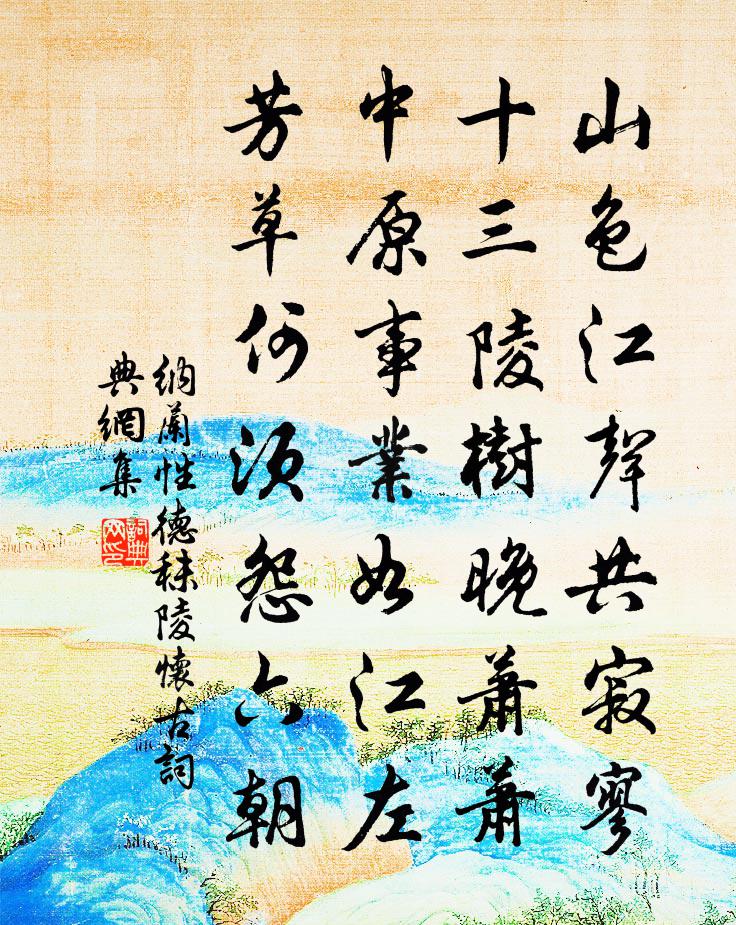 山色江聲共寂寥
十三陵樹晚蕭蕭
中原事業如江左
芳草何須怨六朝
納蘭性德秣陵懷古詞
典網集
詞典網印